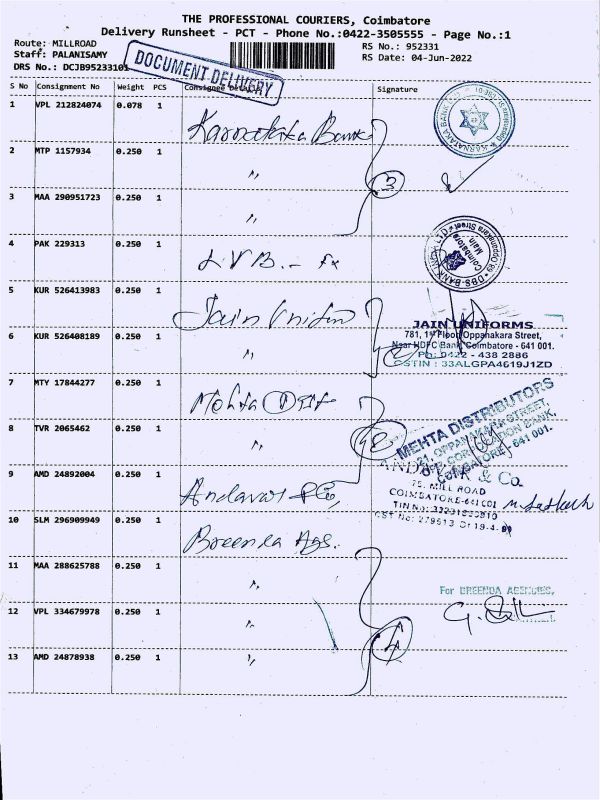 THE PROFESSIONAL COURIERS, Coimbatore
Delivery Runsheet - PCT - Phone No.:0422-3505555 - Page No.:1
Route: MILLROAD
RS No.: 952331
Staff: PALANISAMY
RS Date: 04-Jun-2022
DRS No.: DCJB95233101
DOCUMENT DELIVERY
S No Consignment No Weight PCS Consignee Details Signature
1 VPL 212824074 0.078 1 Karnataka Bank
KARNATAKA BANK LTD
2 MTP 1157934 0.250 1 "
3
3 MAA 290951723 0.250 1 "
4 PAK 229313 0.250 1 L V B. -
DBS BANK INDIA LTD. Coimbatore Main
5 KUR 526413983 0.250 1 Jain Uniform
JAIN UNIFORMS
781, 1st Floor Oppanakara Street,
Near HDFC Bank, Coimbatore - 641 001.
Ph: 0422 - 438 2886
GSTIN : 33ALGPA4619J1ZD
6 KUR 526408189 0.250 1 "
7 MTY 17844277 0.250 1 Mehta Dist
MEHTA DISTRIBUTORS
OPPANAKARA STREET,
CORPORATION BANK,
COIMBATORE - 641 001.
8 TVR 2065462 0.250 1 "
9 AMD 24892004 0.250 1 Andavar & Co,
& Co.
75, MILL ROAD
COIMBATORE-641 001
10 SLM 296909949 0.250 1 Breenda Ags.
11 MAA 288625788 0.250 1 "
For BREENDA AGENCIES,
12 VPL 334679978 0.250 1 "
4
13 AMD 24878938 0.250 1 "